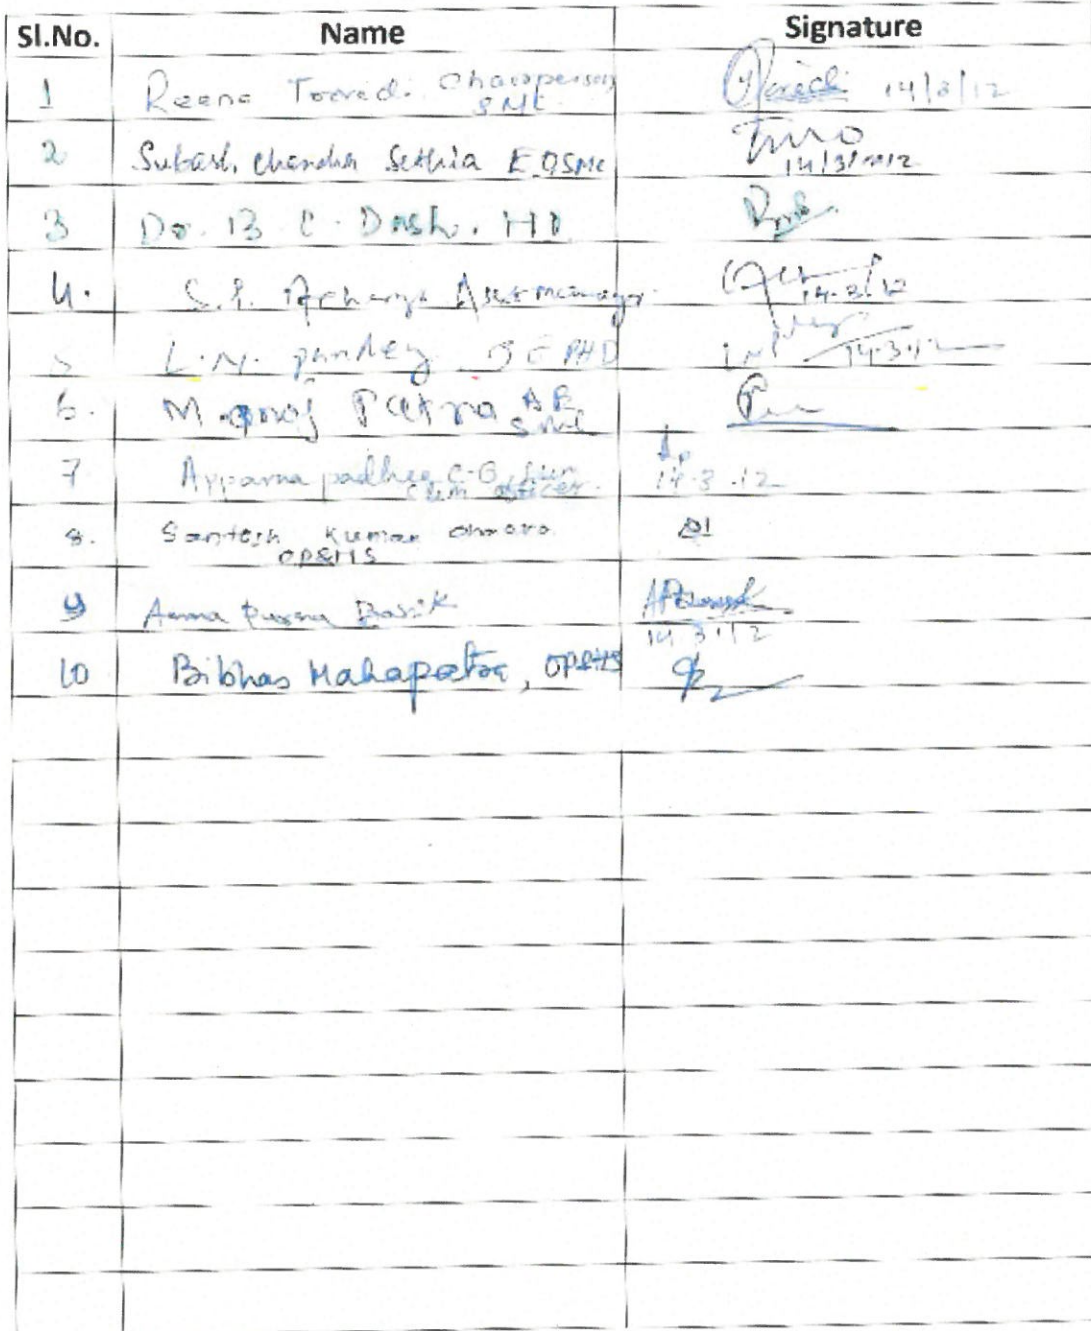 Sl.No. Name Signature
1 Reena Chairperson 14/3/12
SMC
2 Subash Chandra Sethia E.O SMC
14/3/2012
3 Dr. B C. Dash. HO
4. S.P. Acharya Asst manager 14.3.12
5 L.N. pandey JE PHD 14.3.12
6. Manoj Patra AE
SMC
7 Apparna padhee C.O,
officer. 14.3.12
8. Santosh Kumar
OPSHS
9 Anna Purna Barik
14.3.12
10 Bibhas Mahapatra, OPSHS